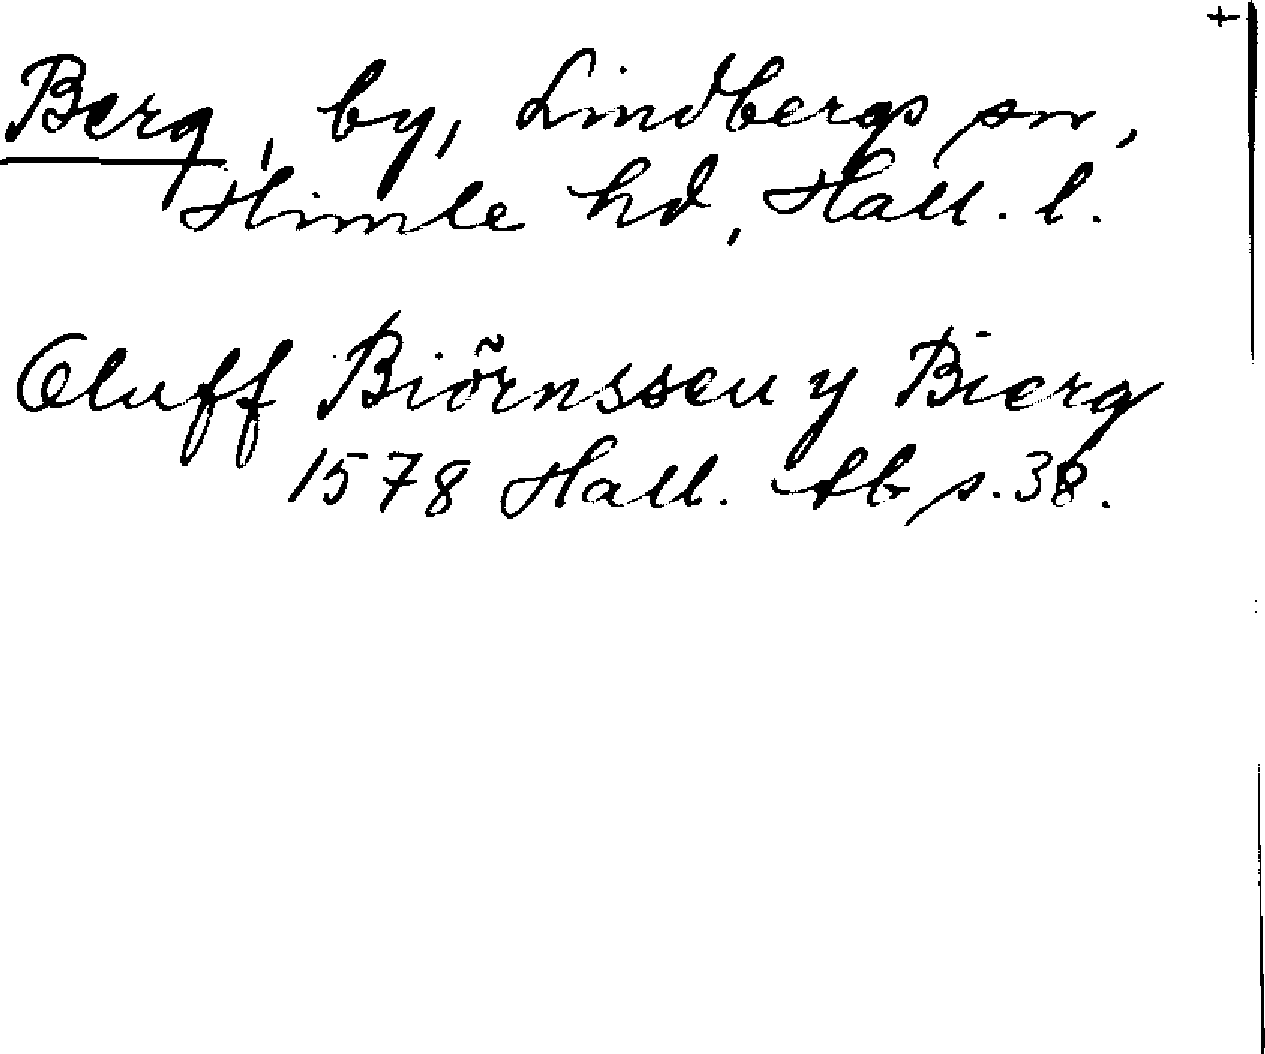 +
Berg, by, Lindbergs sn,
Himle hd, Hall. l.
Oluff Biörnssen y Bierg
1578 Hall. Ab s. 38.